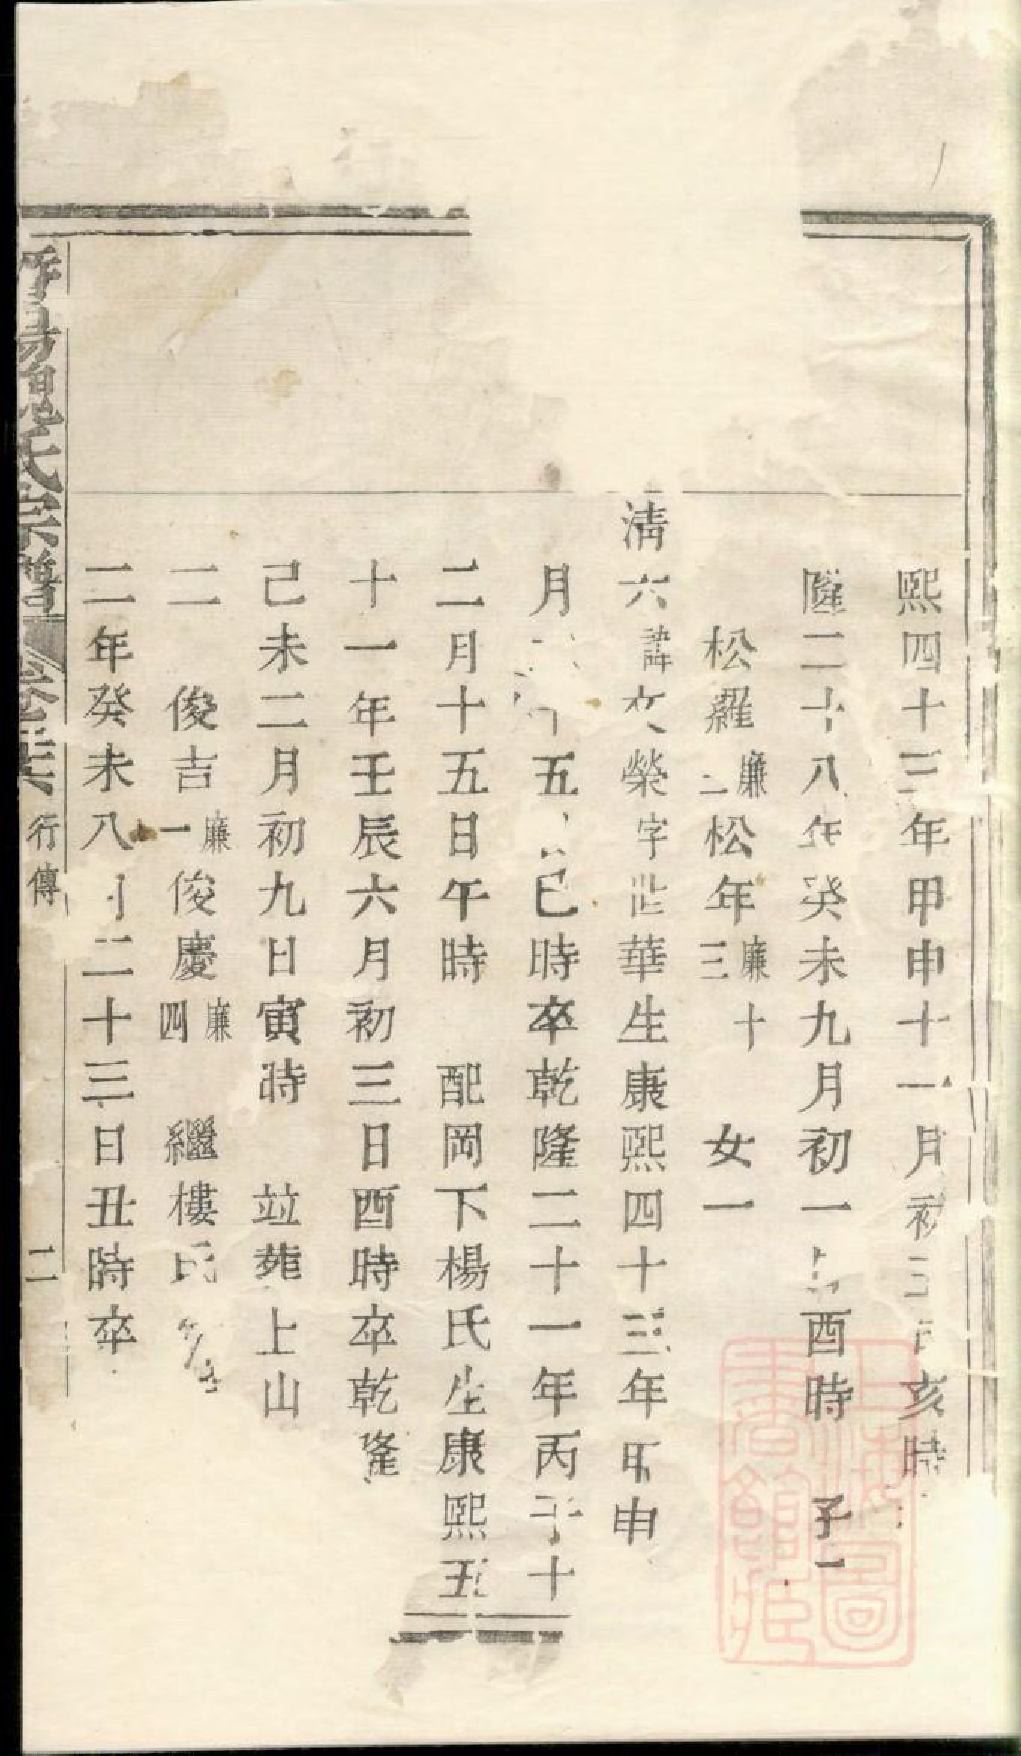 熙四十三年甲申十一月初三日亥時
隆二十八年癸未九月初一日酉時 子一
松羅廉二松年廉十三 女一
清六諱文榮字世華生康熙四十三年甲申
月十五巳時卒乾隆二十一年丙子十
二月十五日午時 配岡下楊氏生康熙五
十一年壬辰六月初三日酉時卒乾隆
己未二月初九日寅時 竝葬上山
二 俊吉廉一俊慶廉四 繼樓氏
二年癸未八月二十三日丑時卒
魏氏宗譜 行傳 二
上海圖書館藏